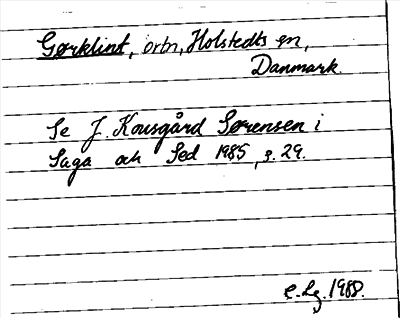 Gørklint, ortn, Holstedts sn,
Danmark.
Se J. Kousgård Sørensen i
Saga och Sed 1985, s. 29.
E. Lg. 1988.